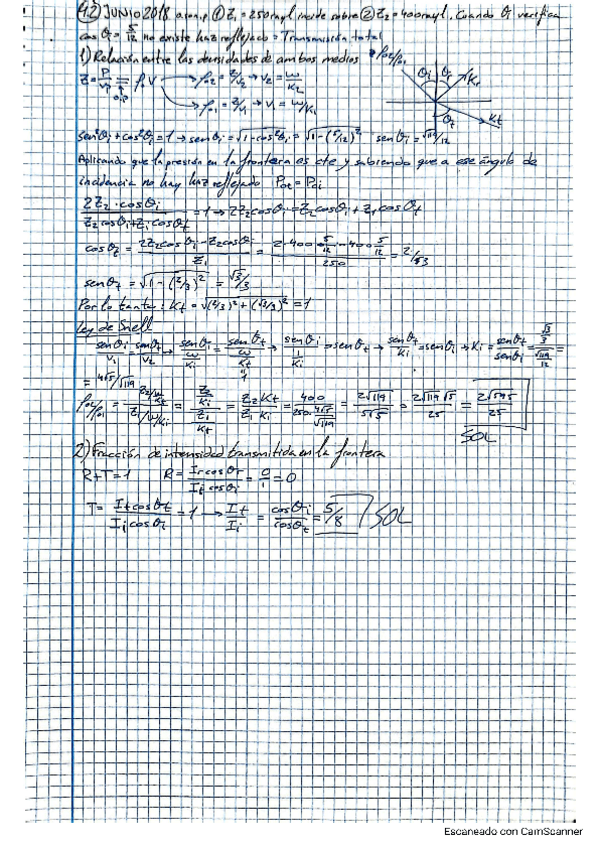 42) JUNIO 2018 a.o.n.p ① Z₁ = 250 rayl incide sobre ② Z₂ = 400 rayl. Cuando θi verifica
cos θi = 5/12 no existe haz reflejado = Transmisión total
1) Relación entre las densidades de ambos medios ρ02/ρ01
Z = P/v = ρ0 V → ρ02 = Z2/V2 → V2 = ω/K2
o.p → ρ01 = Z1/V1 → V1 = ω/K1
θi θr Kr
θt Kt
sen²θi + cos²θi = 1 → senθi = √(1-cos²θi) = √(1-(5/12)²) senθi = √119/12
Aplicando que la presión en la frontera es cte y sabiendo que a ese ángulo de
incidencia no hay haz reflejado Pot = Poi
2Z2·cosθi / (Z2cosθi + Z1cosθt) = 1 → 2Z2cosθi = Z2cosθi + Z1cosθt
cosθt = (2Z2cosθi - Z2cosθi)/Z1 = (2·400·5/12 - 400·5/12)/250 = 2/3
senθt = √(1-(2/3)²) = √5/3
Por lo tanto: Kt = √((2/3)² + (√5/3)²) = 1
Ley de Snell
senθi/V1 = senθt/V2 → senθi/(ω/Ki) = senθt/(ω/Kt) → senθi/(1/Ki) = senθt → senθt/Ki = senθi → Ki = senθt/senθi = (√5/3)/(√119/12) =
= 4√5/√119
ρ02/ρ01 = (Z2/ω/Kt)/(Z1/ω/Ki) = (Z2/Ki)/(Z1/Kt) = Z2 Kt/Z1 Ki = 400/(250·4√5/√119) = 2√119/5√5 = 2√119√5/25 = 2√595/25
SOL
2) Fracción de intensidad transmitida en la frontera
R+T=1 R = Ir cosθr/Ii cosθi = 0/1 = 0
T = It cosθt/Ii cosθi = 1 → It/Ii = cosθi/cosθt = 5/8 SOL
Escaneado con CamScanner